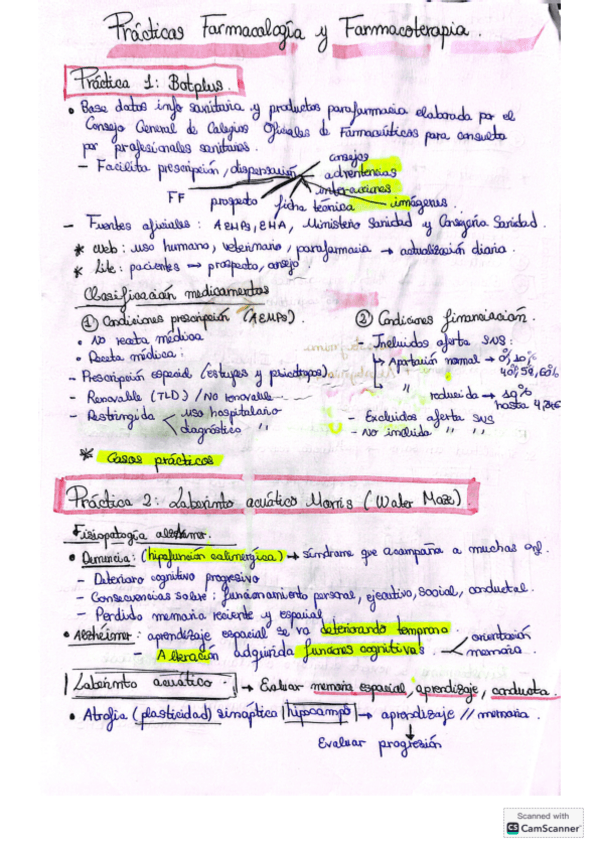 Prácticas Farmacología y Farmacoterapia.
Práctica 1: Botplus.
• Base datos info sanitaria y productos parafarmacia elaborada por el
Consejo General de Colegios Oficiales de Farmacéuticos para consulta
por profesionales sanitarios.
- Facilita prescripción/dispensación
consejos
advertencias
interacciones
imágenes
ficha técnica
prospecto
FF
- Fuentes oficiales: AEMPS, EMA, Ministerio Sanidad y Consejería Sanidad.
* Web: uso humano, veterinario, parafarmacia → actualización diaria.
* Lite: pacientes → prospecto, consejo.
Clasificación medicamentos
① Condiciones prescripción (AEMPS).
• No receta médica
• Receta médica:
- Prescripción especial (estupes y psicotropos)
- Renovable (TLD) / No renovable
- Restringida
uso hospitalario
diagnóstico
② Condiciones financiación.
- Incluidos oferta SNS:
↳ Aportación normal → 0%, 10%
40%, 50, 60%
↳ " reducida → 10%
hasta
- Excluidos oferta SNS
- No incluida " "
* Casos prácticos
Práctica 2: Laberinto acuático Morris (Water Maze)
Fisiopatología alzheimer.
• Demencia: (hipofunción colinérgica) → síndrome que acompaña a muchas enf.
- Deterioro cognitivo progresivo
- Consecuencias sobre: funcionamiento personal, ejecutivo, social, conductal.
- Perdida memoria reciente y espacial
• Alzhéimer: aprendizaje espacial se va deteriorando temprana.
- Alteración adquirida funciones cognitivas.
orientación
memoria.
Laberinto acuático → Evaluar memoria espacial, aprendizaje, conducta.
• Atrofia (plasticidad) sináptica hipocampo → aprendizaje // memoria.
Evaluar progresión
Scanned with
CS CamScanner